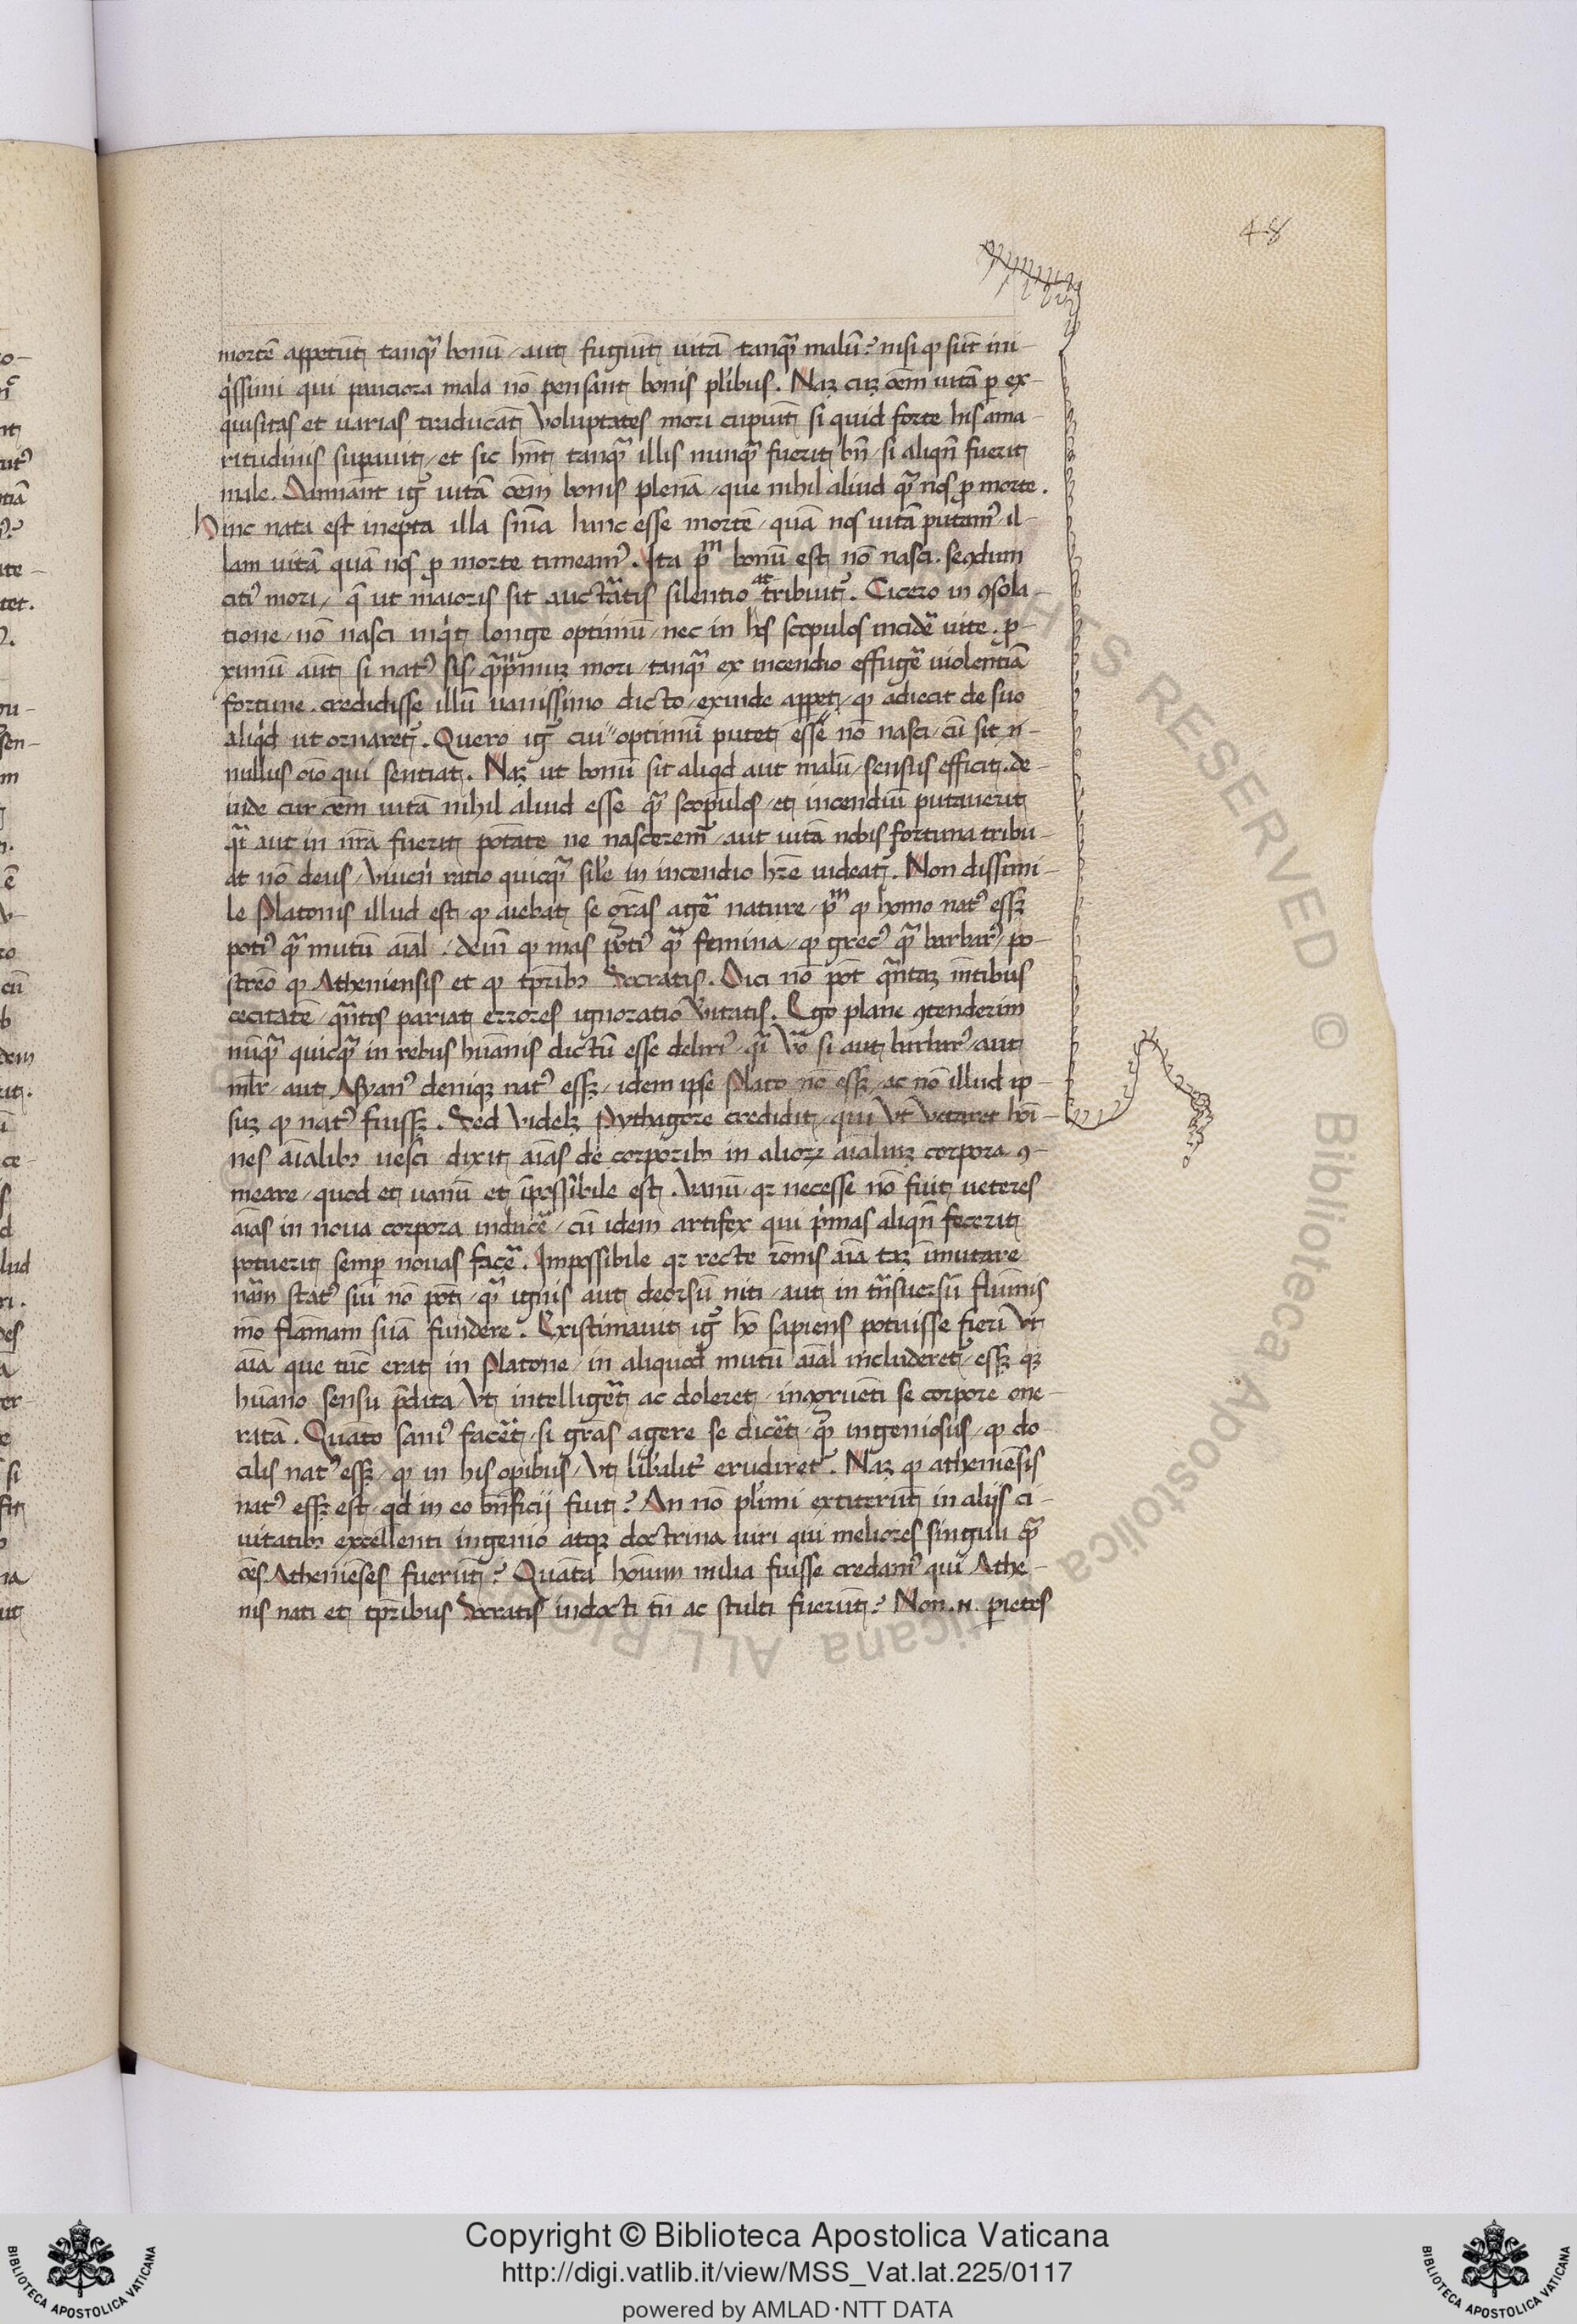 48
mortē appetūt tanqᷓ bonū / aut fugiūt uitā tanqᷓ malū? nisi ꝙ sūt ini-
q̇ssimi qui pauciora mala nō pensānt bonis plibus. Naꝫ cuꝫ oēm uitā p ex-
quisitas et uarias traducāt voluptates mori cupiūt si quid forte his ama-
ritudinis supauit / et sic hn̄t tanqᷓ illis nunqᷓ fuerit bn̄ / si aliqn̄ fuerit
male. Damnant igr̄ uitā oēm bonis plenā / que nihil aliud qᷓ nos p morte.
Hinc nata est inepta illa sn̄ia hanc esse mortē / quā nos uitā putamꝰ / il-
lam uitā quā nos ꝓ morte timeamꝰ. Ita pm bonū est nō nasci. secūdum
citiꝰ mori / q̄ ut maioris sit auctr̄atis silentio attribuit᷑. Cicero in ꝯsola-
tione / nō nasci inq̇t longe optimū / nec in hos scopulos incidē uite. ꝓ-
ximū aūt si natꝰ sis / qᷓpmuꝫ mori / tanqᷓ ex incendio effugē uiolentiā
fortune. credidisse illū uanissimo dicto / exinde appet / ꝙ adiecit de suo
aliq̇d ut ornaret᷑. Quero igr̄ cui optimū putet esse nō nasci / cū sit n-
nullus oīo qui sentiat. Naꝫ ut bonū sit aliqd aut malū / sensus efficit. de-
inde cur oēm uitā nihil aliud esse qᷓ scopulos / et incendiū putauerit
qᷓi aut in nr̄a fuerit potāte ne nasceremr̄ / aut uitā nobis fortuna tribu-
at nō deus / viuēn ratio quicqᷓ sile in incendio hr̄e uideat᷑. Non dissimi-
le Platonis illud est / ꝙ aiebat se grās agē nature / pm ꝙ homo natꝰ essꝫ
potiꝰ qᷓ mutū aīal / dein̄ ꝙ mas potiꝰ qᷓ femina / ꝙ grecꝰ qᷓ barbarꝰ / po-
stremō ꝙ Atheniensis et ꝙ tp̄ribꝫ Socratis. Dici nō pōt qᷓntaꝫ mn̄tibus
cecitatē / qᷓntos pariat errores ignoratio vītatis. Ego plane ꝯtenderim
nūqᷓ quicqᷓ in rebus hūanis dictū esse deliriꝰ / qᷓi vo si aut barbarꝰ / aut
mlr̄ / aut Asyanꝰ deniqꝫ natꝰ essꝫ / idem ipse Plato nō essꝫ / ac nō illud ip-
suꝫ ꝙ natꝰ fuissꝫ. Sed videlꝫ Pythagore credidit / qui vt vetaret hoī-
nes aīalibꝫ uesci dixit aīas de corporibꝫ in alioꝝ aīaliuꝫ corpora ꝯ-
meare / quod et uanū et īpossibile est. Vanū / qꝛ necesse nō fuit ueteres
aīas in noua corpora inducē / cū idem artifex qui pmas aliqn̄ fecerit
potuerit semp nouas facē. Impossibile qꝛ recte rōnis aīa taꝫ īmutare
nām statꝰ sui nō pōt / qᷓ ignis aut deorsū niti / aut in trn̄suersū flumīs
mō flammam suā fundere. Existimauit igr̄ hō sapiens potuisse fieri vt
aīa que tūc erat in Platone / in aliquod mutū aīal includeret᷑ / essꝫ qꝫ
hūano sensu pdita / vt intelligēt ac doleret / inꝯgruēti se corpore one-
ratā. Quāto saniꝰ facēt / si grās agere se dicēt / qᷓ ingeniosus / ꝙ do-
cilis natꝰ essꝫ / ꝙ in his opibus / vt libalitꝰ erudiret᷑. Naꝫ ꝙ atheniēsis
natꝰ essꝫ est / qd in eo bn̄ficij fuit? An nō plimi extiterūt in alijs ci-
uitatibꝫ excellenti ingenio atqꝫ doctrina uiri qui meliores singuli qᷓ
oēs Atheniēses fuerūt? Quāta hoīum milia fuisse credamꝰ qui Athe-
nis nati et tp̄ribus Socratis indocti tn̄ ac stulti fuerūt? Non .n. parietes
Copyright © Biblioteca Apostolica Vaticana
http://digi.vatlib.it/view/MSS_Vat.lat.225/0117
powered by AMLAD·NTT DATA